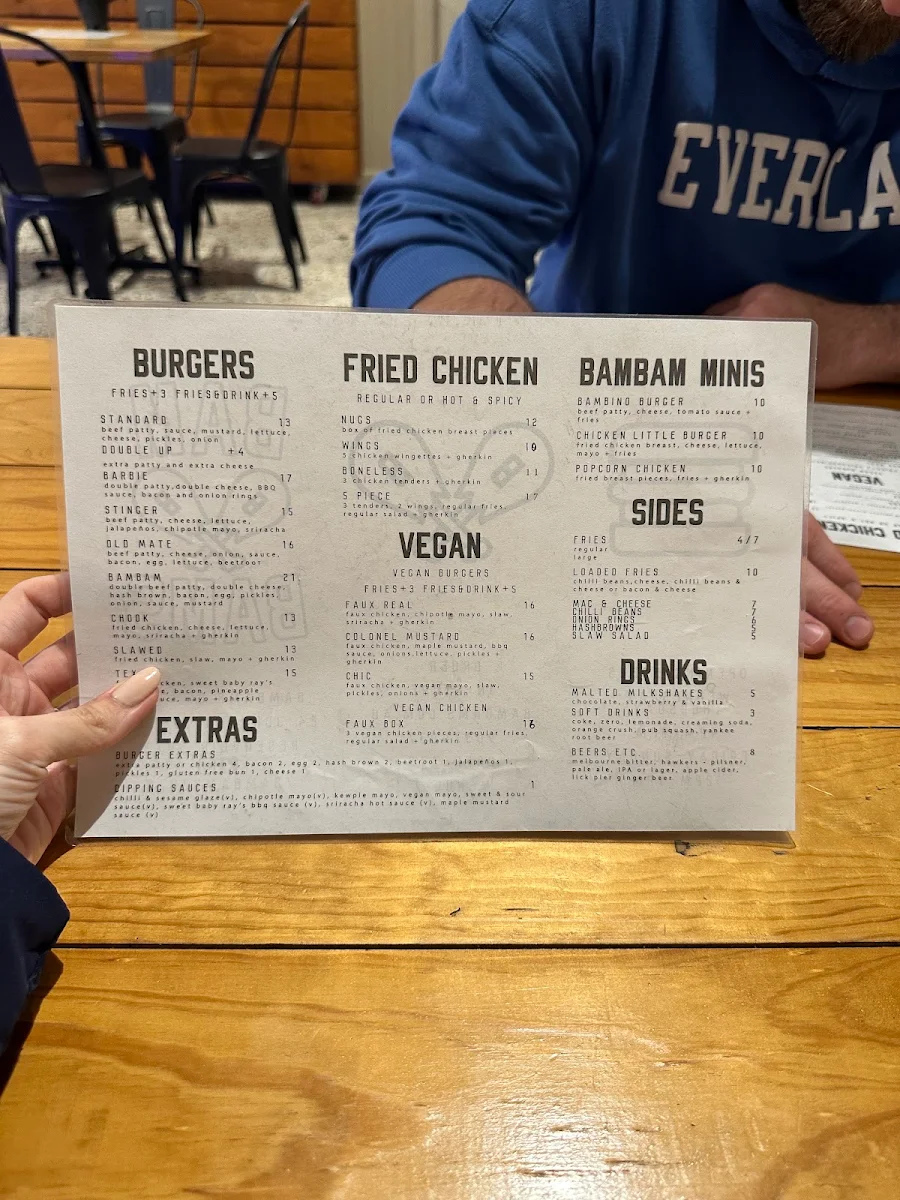 EVERLA
BURGERS
FRIES+3 FRIES&DRINK+5
STANDARD 13
beef patty, sauce, mustard, lettuce,
cheese, pickles, onion
DOUBLE UP +4
extra patty and extra cheese
BARBIE 17
double patty,double cheese, BBQ
sauce, bacon and onion rings
STINGER 15
beef patty, cheese, lettuce,
jalapeños, chipotle mayo, sriracha
OLD MATE 16
beef patty, cheese, onion, sauce,
bacon, egg, lettuce, beetroot
BAMBAM 21
double beef patty, double cheese,
hash brown, bacon, egg, pickles,
onion, sauce, mustard
CHOOK 13
fried chicken, cheese, lettuce,
mayo, sriracha + gherkin
SLAWED 13
fried chicken, slaw, mayo + gherkin
TEX 15
sweet baby ray's
bacon, pineapple
mayo + gherkin
EXTRAS
BURGER EXTRAS
extra patty or chicken 4, bacon 2, egg 2, hash brown 2, beetroot 1, jalapeños 1,
pickles 1, gluten free bun 1, cheese 1
DIPPING SAUCES 1
chilli & sesame glaze(v), chipotle mayo(v), kewpie mayo, vegan mayo, sweet & sour
sauce(v), sweet baby ray's bbq sauce (v), sriracha hot sauce (v), maple mustard
sauce (v)
FRIED CHICKEN
REGULAR OR HOT & SPICY
NUGS 12
box of fried chicken breast pieces
WINGS
5 chicken wingettes + gherkin
BONELESS 11
3 chicken tenders + gherkin
5 PIECE 17
3 tenders, 2 wings, regular fries,
regular salad + gherkin
VEGAN
VEGAN BURGERS
FRIES+3 FRIES&DRINK+5
FAUX REAL 16
faux chicken, chipotle mayo, slaw,
sriracha + gherkin
COLONEL MUSTARD 16
faux chicken, maple mustard, bbq
sauce, onions,lettuce, pickles +
gherkin
CHIC 15
faux chicken, vegan mayo, slaw,
pickles, onions + gherkin
VEGAN CHICKEN
FAUX BOX
3 vegan chicken pieces, regular fries,
regular salad + gherkin
BAMBAM MINIS
BAMBINO BURGER 10
beef patty, cheese, tomato sauce +
fries
CHICKEN LITTLE BURGER 10
fried chicken breast, cheese, lettuce,
mayo + fries
POPCORN CHICKEN 10
fried breast pieces, fries + gherkin
SIDES
FRIES 4/7
regular
large
LOADED FRIES 10
chilli beans,cheese, chilli beans &
cheese or bacon & cheese
MAC & CHEESE 7
CHILLI BEANS 7
ONION RINGS 6
HASHBROWNS 5
SLAW SALAD 5
DRINKS
MALTED MILKSHAKES 5
chocolate, strawberry & vanilla
SOFT DRINKS 3
coke, zero, lemonade, creaming soda,
orange crush, pub squash, yankee
root beer
BEERS ETC 8
melbourne bitter, hawkers - pilsner,
pale ale, IPA or lager, apple cider,
lick pier ginger beer
VEGAN
CHICKEN